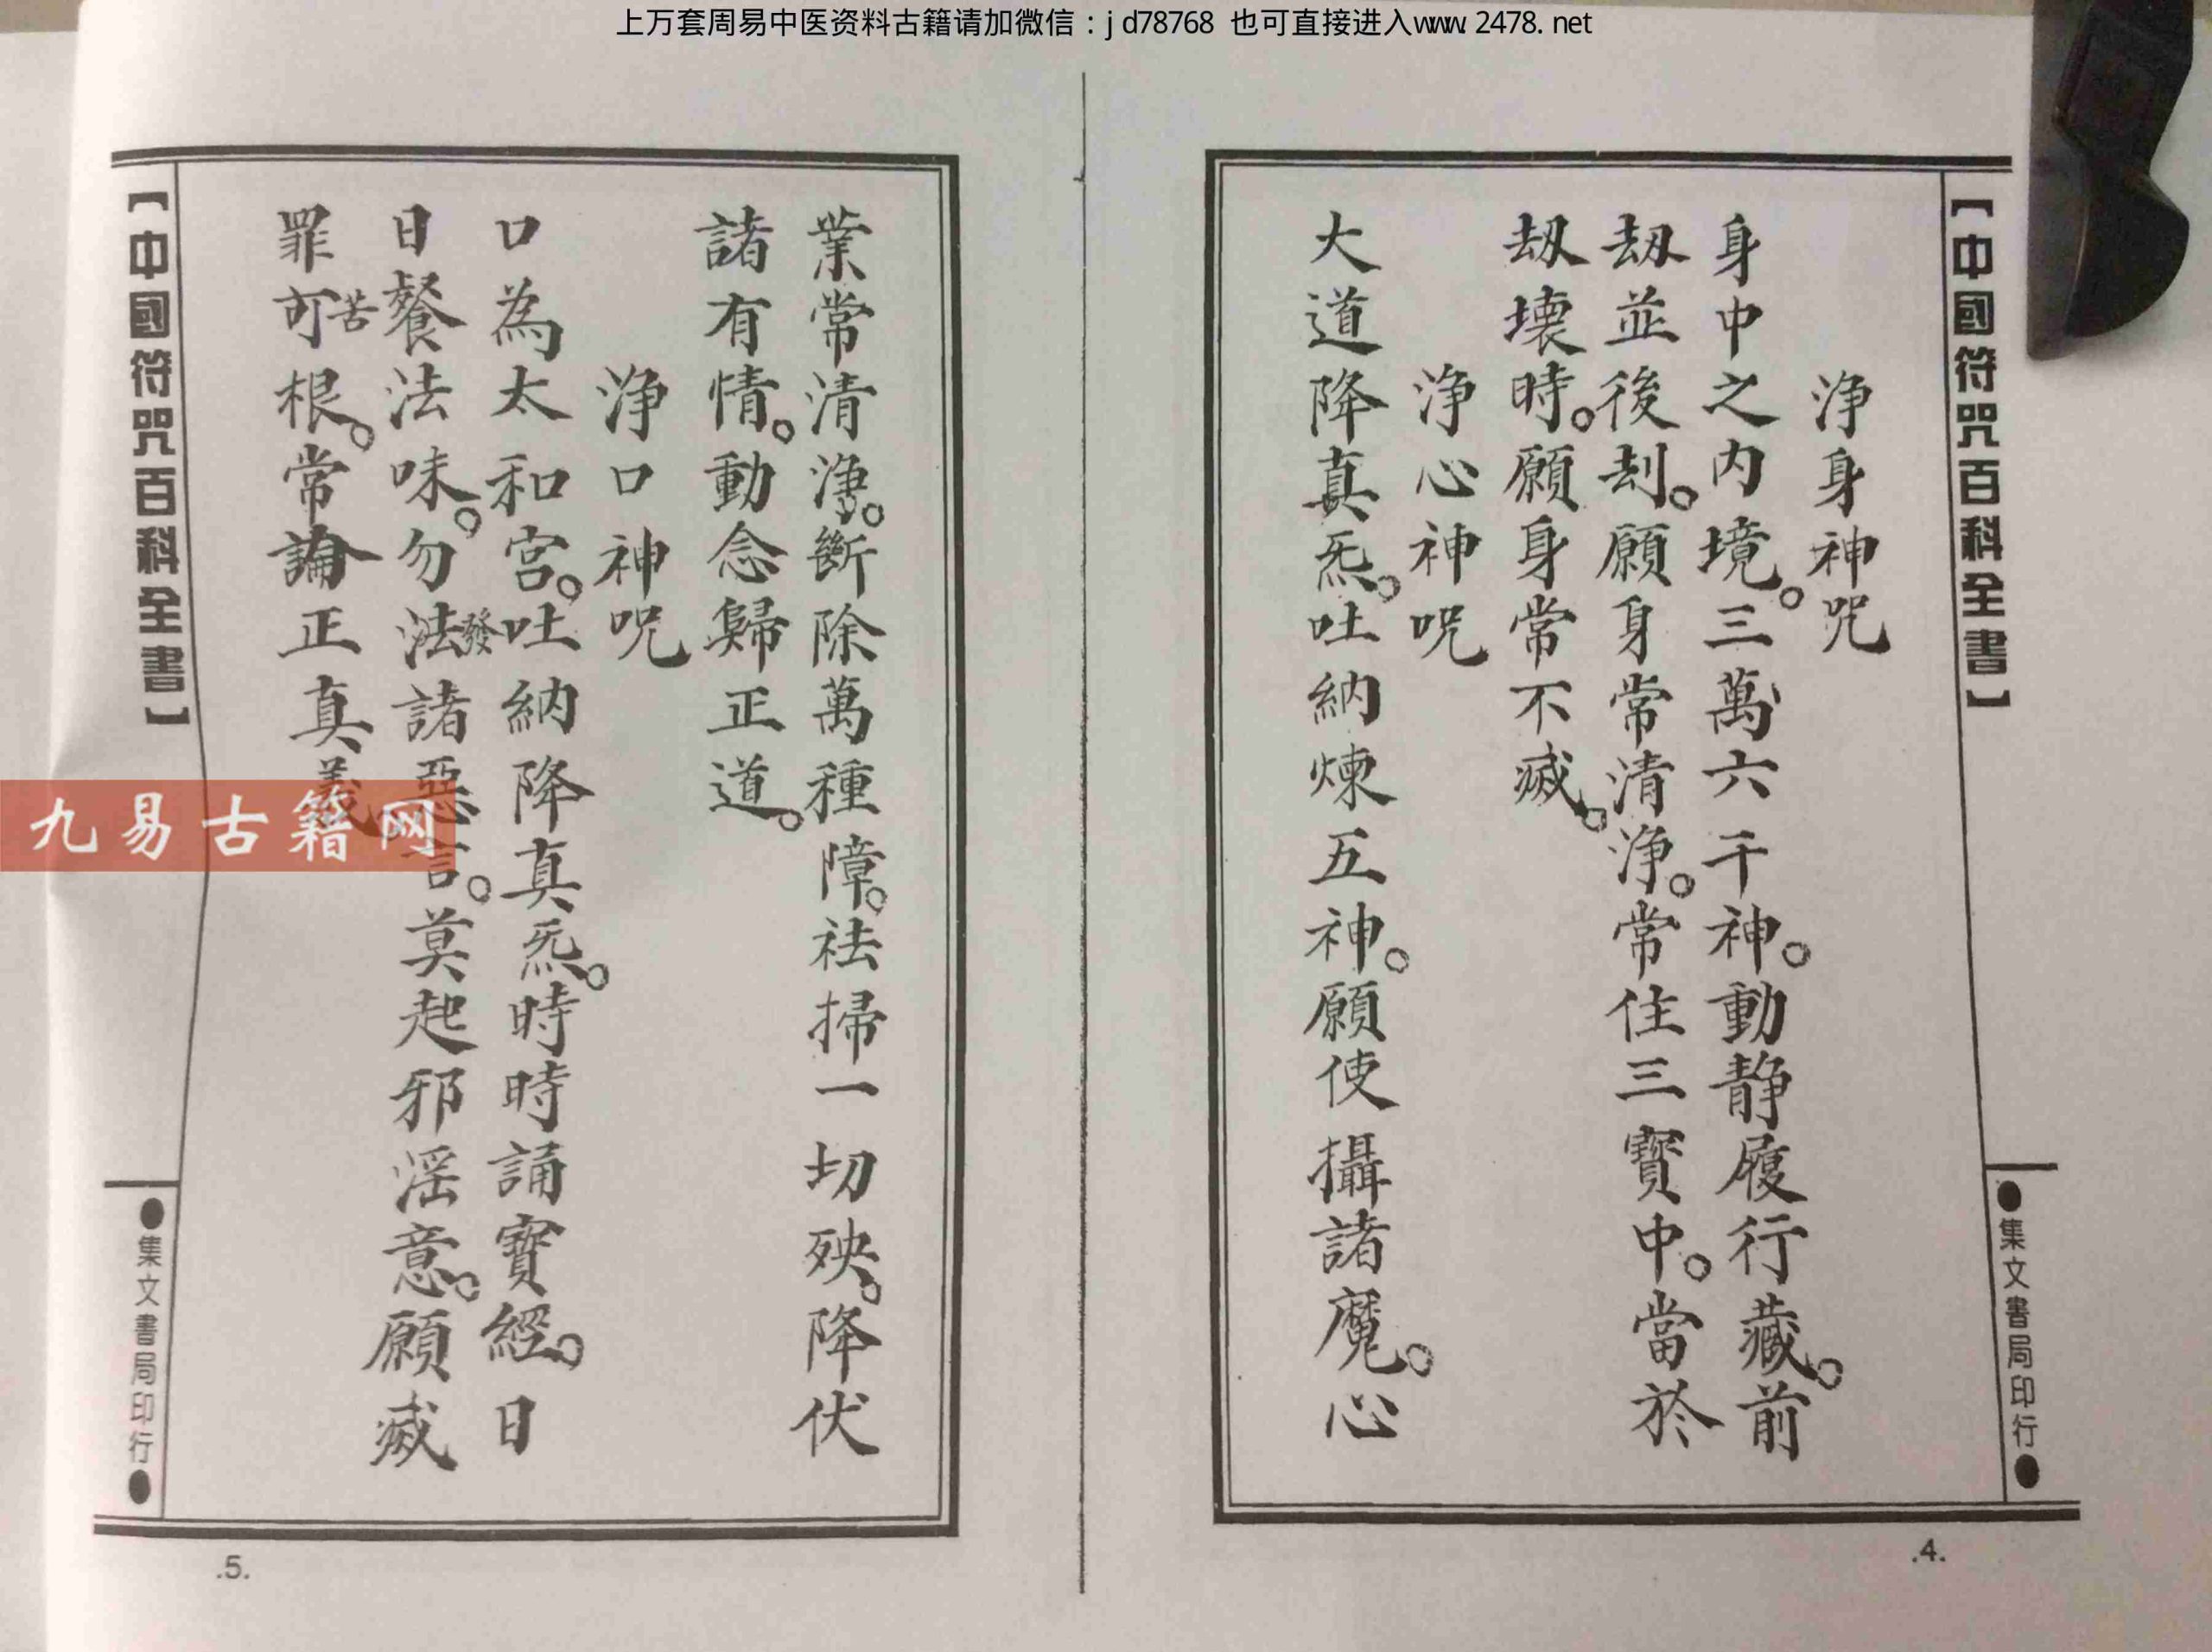 上万套周易中医资料古籍请加微信：jd78768 也可直接进入www.2478.net
【中國符咒百科全書】
●集文書局印行●
淨身神咒
身中之內境。三萬六千神。動靜履行藏。前
刼並後刼。願身常清淨。常住三寶中。當於
刼壞時。願身常不滅。
淨心神咒
大道降真炁。吐納煉五神。願使攝諸魔。心
.4.
業常清淨。斷除萬種障。祛掃一切殃。降伏
諸有情。動念歸正道。
淨口神咒
口為太和宮。吐納降真炁。時時誦寶經。日
日餐法味。勿法發諸惡言。莫起邪淫意。願滅
罪可苦根。常論正真義
【中國符咒百科全書】
●集文書局印行●
.5.
九易古籍网